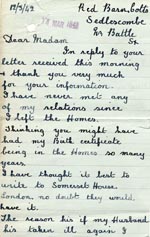 12/3/42
Red Barn, Cotts
Sedlescombe
Nr Battle
14 MAR 1942
Sx
Dear Madam
In reply to your
letter received this morning
& thank you very much
for your information.
I have never met any
of my relations since
I left the Homes.
Thinking you might have
had my Birth certificate
being in the Homes so many
years.
I have thought it best to
write to Somerset House.
London. no doubt they would
have it.
The reason his if my Husband
his taken ill again I